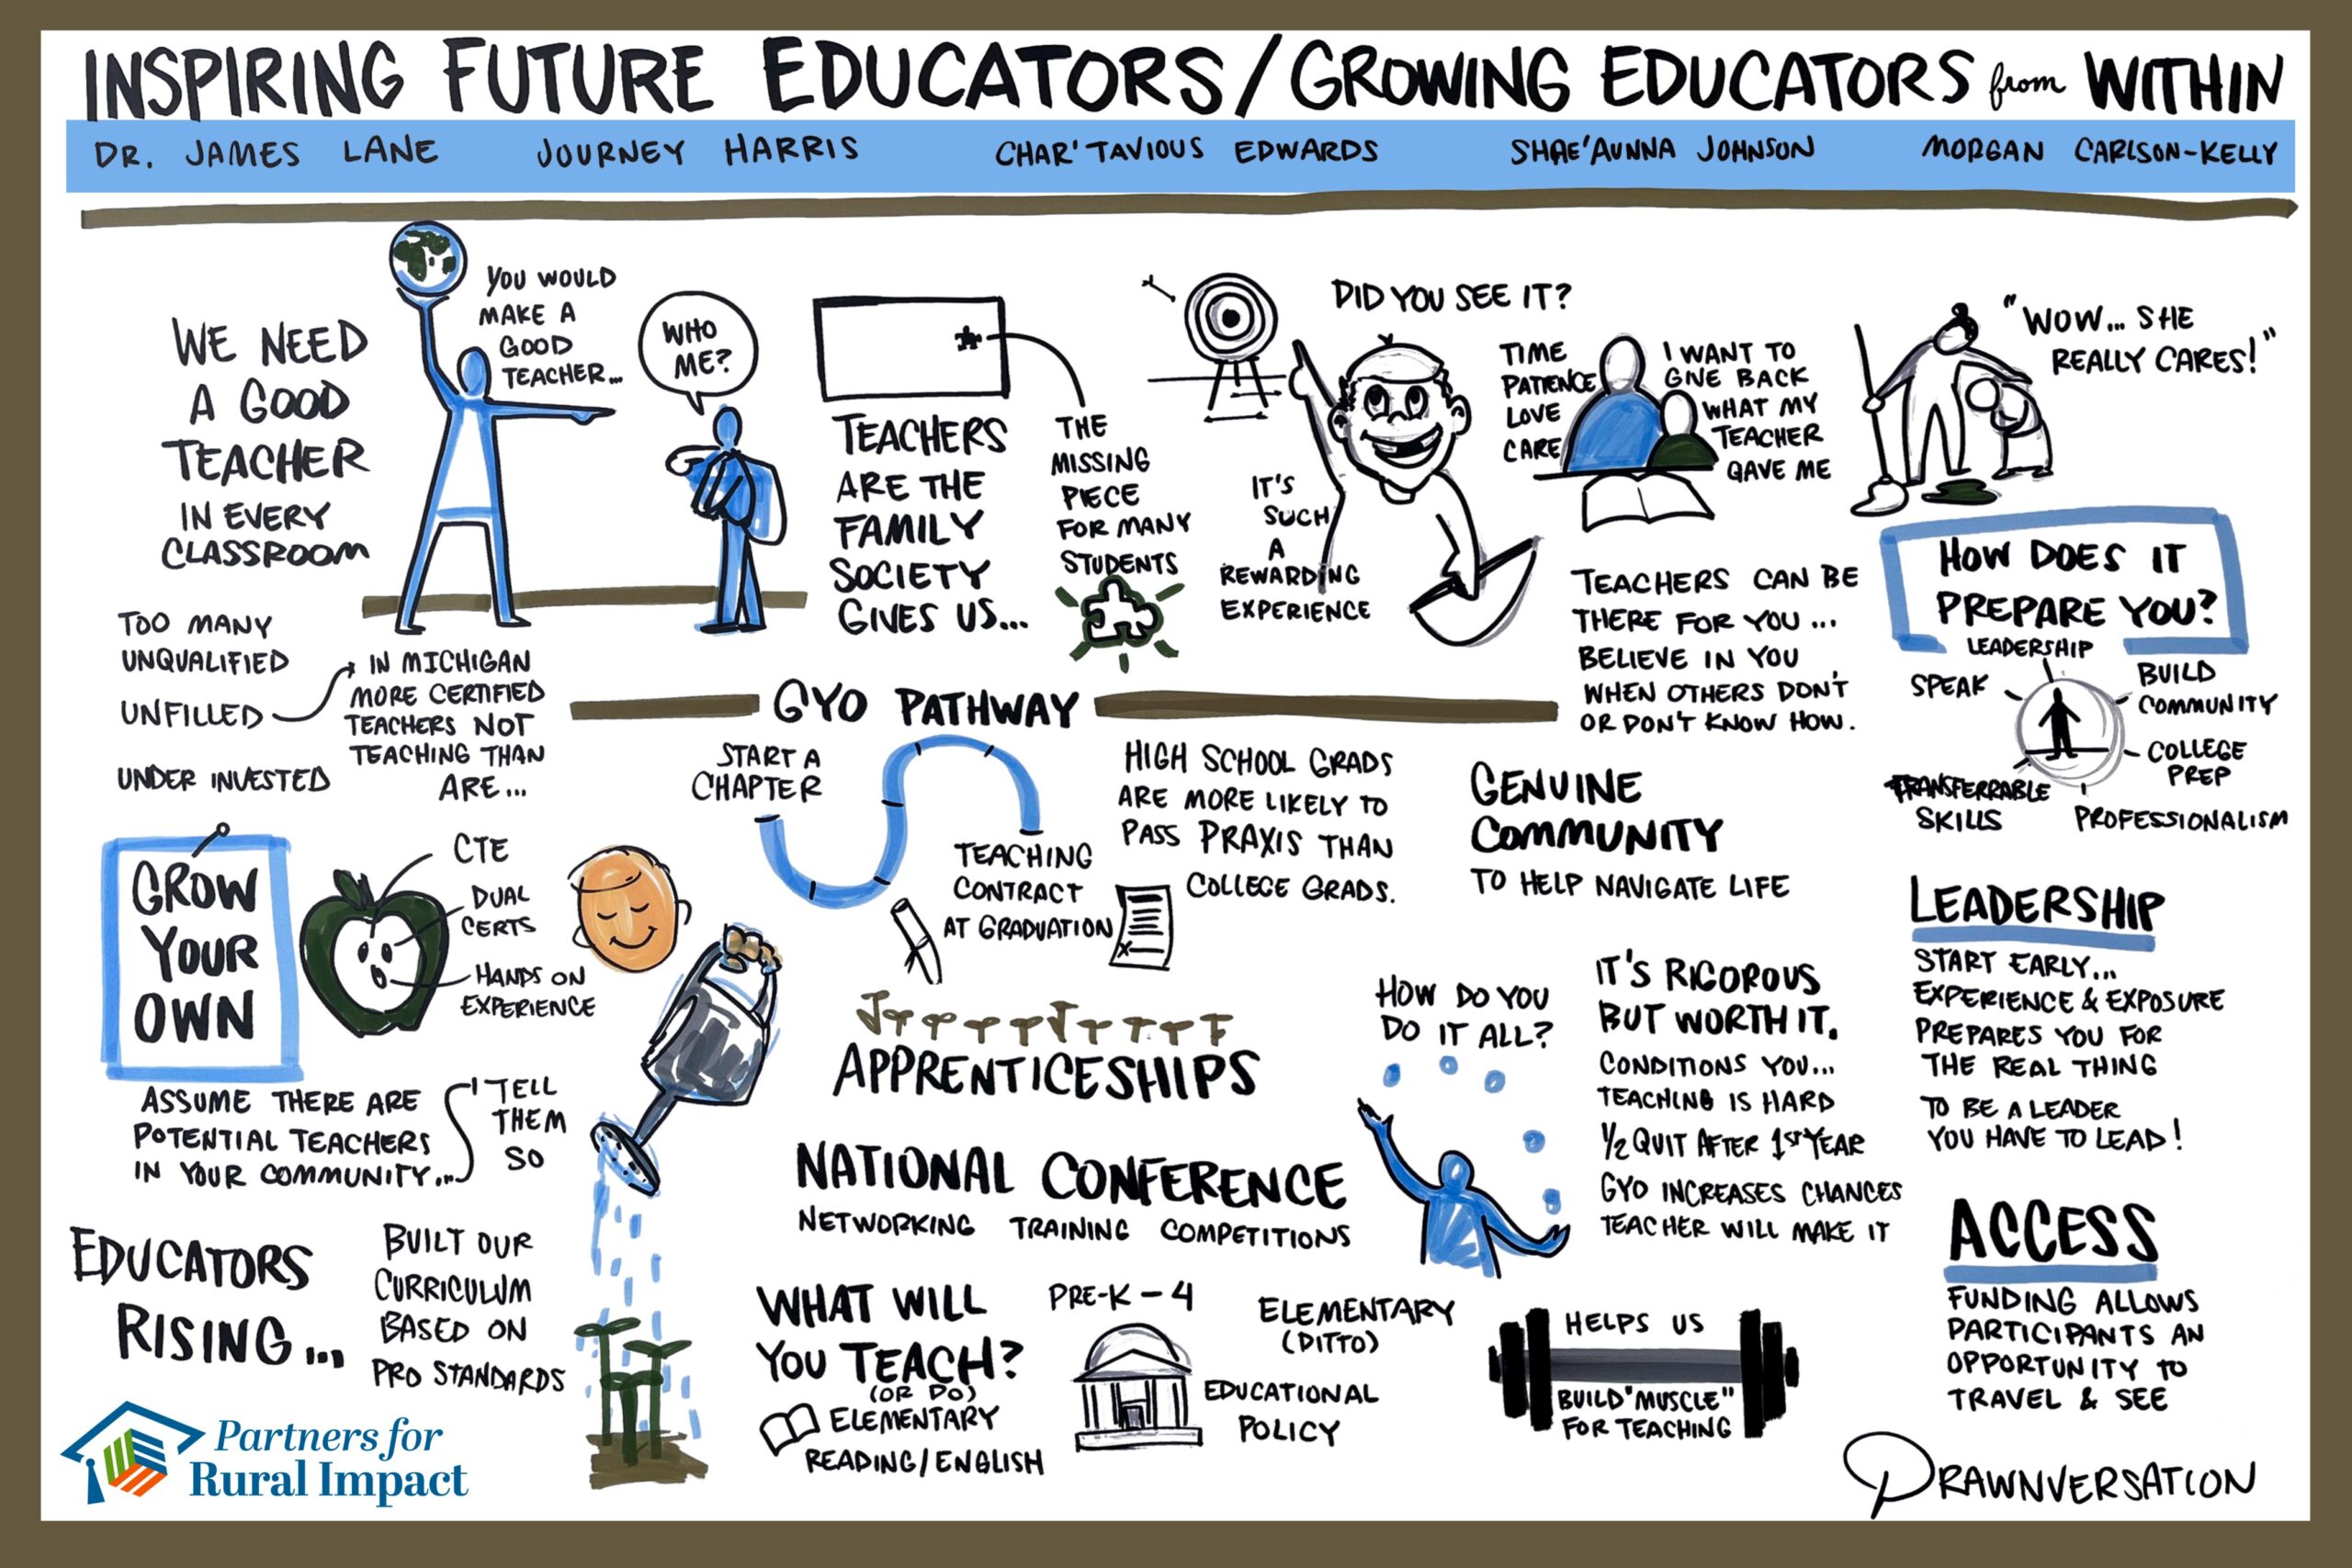 INSPIRING FUTURE EDUCATORS/GROWING EDUCATORS from WITHIN
DR. JAMES LANE JOURNEY HARRIS CHAR'TAVIOUS EDWARDS SHAE'AUNNA JOHNSON MORGAN CARLSON-KELLY
WE NEED
A GOOD
TEACHER
IN EVERY
CLASSROOM
YOU WOULD
MAKE A
GOOD
TEACHER...
WHO
ME?
TOO MANY
UNQUALIFIED
UNFILLED
UNDER INVESTED
IN MICHIGAN
MORE CERTIFIED
TEACHERS NOT
TEACHING THAN
ARE...
TEACHERS
ARE THE
FAMILY
SOCIETY
GIVES US...
THE
MISSING
PIECE
FOR MANY
STUDENTS
DID YOU SEE IT?
IT'S
SUCH
A
REWARDING
EXPERIENCE
TIME
PATIENCE
LOVE
CARE
I WANT TO
GIVE BACK
WHAT MY
TEACHER
GAVE ME
"WOW... SHE
REALLY CARES!"
TEACHERS CAN BE
THERE FOR YOU...
BELIEVE IN YOU
WHEN OTHERS DON'T
OR DON'T KNOW HOW.
HOW DOES IT
PREPARE YOU?
LEADERSHIP
SPEAK
BUILD
COMMUNITY
COLLEGE
PREP
TRANSFERRABLE
SKILLS
PROFESSIONALISM
GROW
YOUR
OWN
CTE
DUAL
CERTS
HANDS ON
EXPERIENCE
ASSUME THERE ARE
POTENTIAL TEACHERS
IN YOUR COMMUNITY...
TELL
THEM
SO
GYO PATHWAY
START A
CHAPTER
TEACHING
CONTRACT
AT GRADUATION
X
HIGH SCHOOL GRADS
ARE MORE LIKELY TO
PASS PRAXIS THAN
COLLEGE GRADS.
GENUINE
COMMUNITY
TO HELP NAVIGATE LIFE
APPRENTICESHIPS
NATIONAL CONFERENCE
NETWORKING TRAINING COMPETITIONS
HOW DO YOU
DO IT ALL?
IT'S RIGOROUS
BUT WORTH IT.
CONDITIONS YOU...
TEACHING IS HARD
1/2 QUIT AFTER 1ST YEAR
GYO INCREASES CHANCES
TEACHER WILL MAKE IT
LEADERSHIP
START EARLY...
EXPERIENCE & EXPOSURE
PREPARES YOU FOR
THE REAL THING
TO BE A LEADER
YOU HAVE TO LEAD!
EDUCATORS
RISING...
BUILT OUR
CURRICULUM
BASED ON
PRO STANDARDS
WHAT WILL
YOU TEACH?
(OR DO)
ELEMENTARY
READING/ENGLISH
PRE-K-4
ELEMENTARY
(DITTO)
EDUCATIONAL
POLICY
HELPS US
BUILD "MUSCLE"
FOR TEACHING
ACCESS
FUNDING ALLOWS
PARTICIPANTS AN
OPPORTUNITY TO
TRAVEL & SEE
Partners for
Rural Impact
DRAWNVERSATION